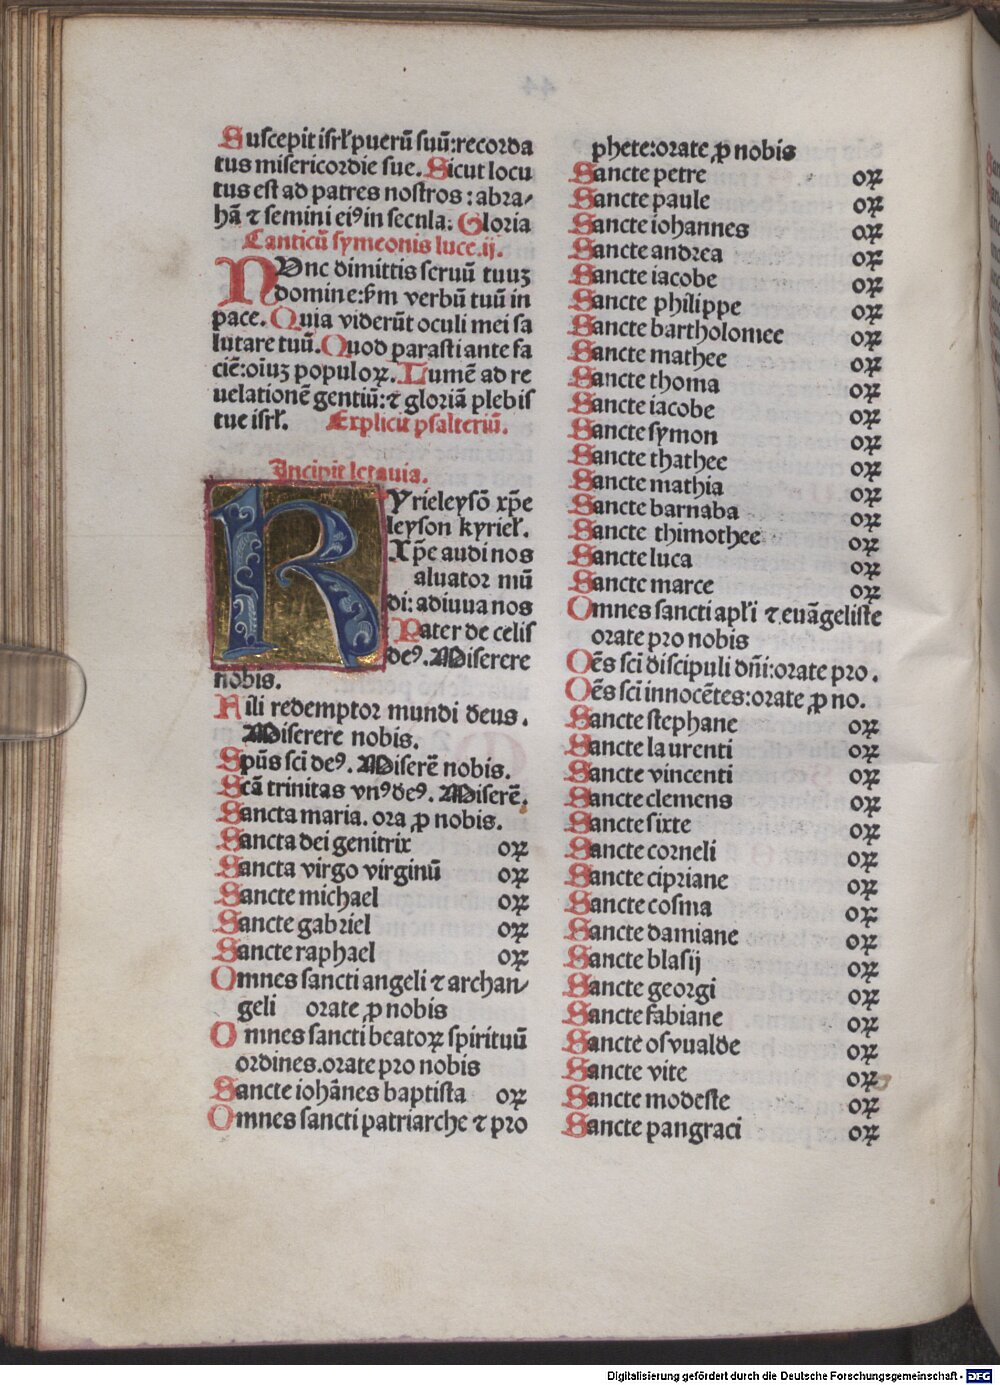 Suscepit isrł puerū suū: recorda
tus misericordie sue. Sicut locu
tus est ad patres nostros: abra-
hā ⁊ semini eiꝰ in secula. Gloria
Canticū symeonis luce. ij.
NVnc dimittis seruū tuuȝ
domine: ẜm verbū tuū in
pace. Quia viderūt oculi mei sa
lutare tuū. Quod parasti ante fa
ciē: oiuȝ populoꝝ. Lumē ad re
uelationē gentiū: ⁊ gloriā plebis
tue isrł. Explicit psalteriū.
Incipit letania.
KYrieleysō xp̄e
leyson kyrieł.
Xp̄e audi nos
aluator mū
di: adiuua nos
Pater de celis
deꝰ. Miserere
nobis.
Fili redemptor mundi deus.
Miserere nobis.
Sp̄us sci deꝰ. Miserē nobis.
Scā trinitas vnꝰ deꝰ. Miserē.
Sancta maria. ora ꝓ nobis.
Sancta dei genitrix oꝝ
Sancta virgo virginū oꝝ
Sancte michael oꝝ
Sancte gabriel oꝝ
Sancte raphael oꝝ
Omnes sancti angeli ⁊ archan-
geli orate ꝓ nobis
Omnes sancti beatoꝝ spirituū
ordines. orate pro nobis
Sancte iohānes baptista oꝝ
Omnes sancti patriarche ⁊ pro
phete: orate ꝓ nobis
Sancte petre oꝝ
Sancte paule oꝝ
Sancte iohannes oꝝ
Sancte andrea oꝝ
Sancte iacobe oꝝ
Sancte philippe oꝝ
Sancte bartholomee oꝝ
Sancte mathee oꝝ
Sancte thoma oꝝ
Sancte iacobe oꝝ
Sancte symon oꝝ
Sancte thathee oꝝ
Sancte mathia oꝝ
Sancte barnaba oꝝ
Sancte thimothee oꝝ
Sancte luca oꝝ
Sancte marce oꝝ
Omnes sancti apłi ⁊ euāgeliste
orate pro nobis
Oēs sci discipuli dn̄i: orate pro.
Oēs sci innocētes: orate ꝓ no.
Sancte stephane oꝝ
Sancte laurenti oꝝ
Sancte vincenti oꝝ
Sancte clemens oꝝ
Sancte sixte oꝝ
Sancte corneli oꝝ
Sancte cipriane oꝝ
Sancte cosma oꝝ
Sancte damiane oꝝ
Sancte blasij oꝝ
Sancte georgi oꝝ
Sancte fabiane oꝝ
Sancte osvualde oꝝ
Sancte vite oꝝ
Sancte modeste oꝝ
Sancte pangraci oꝝ
Digitalisierung gefördert durch die Deutsche Forschungsgemeinschaft - DFG